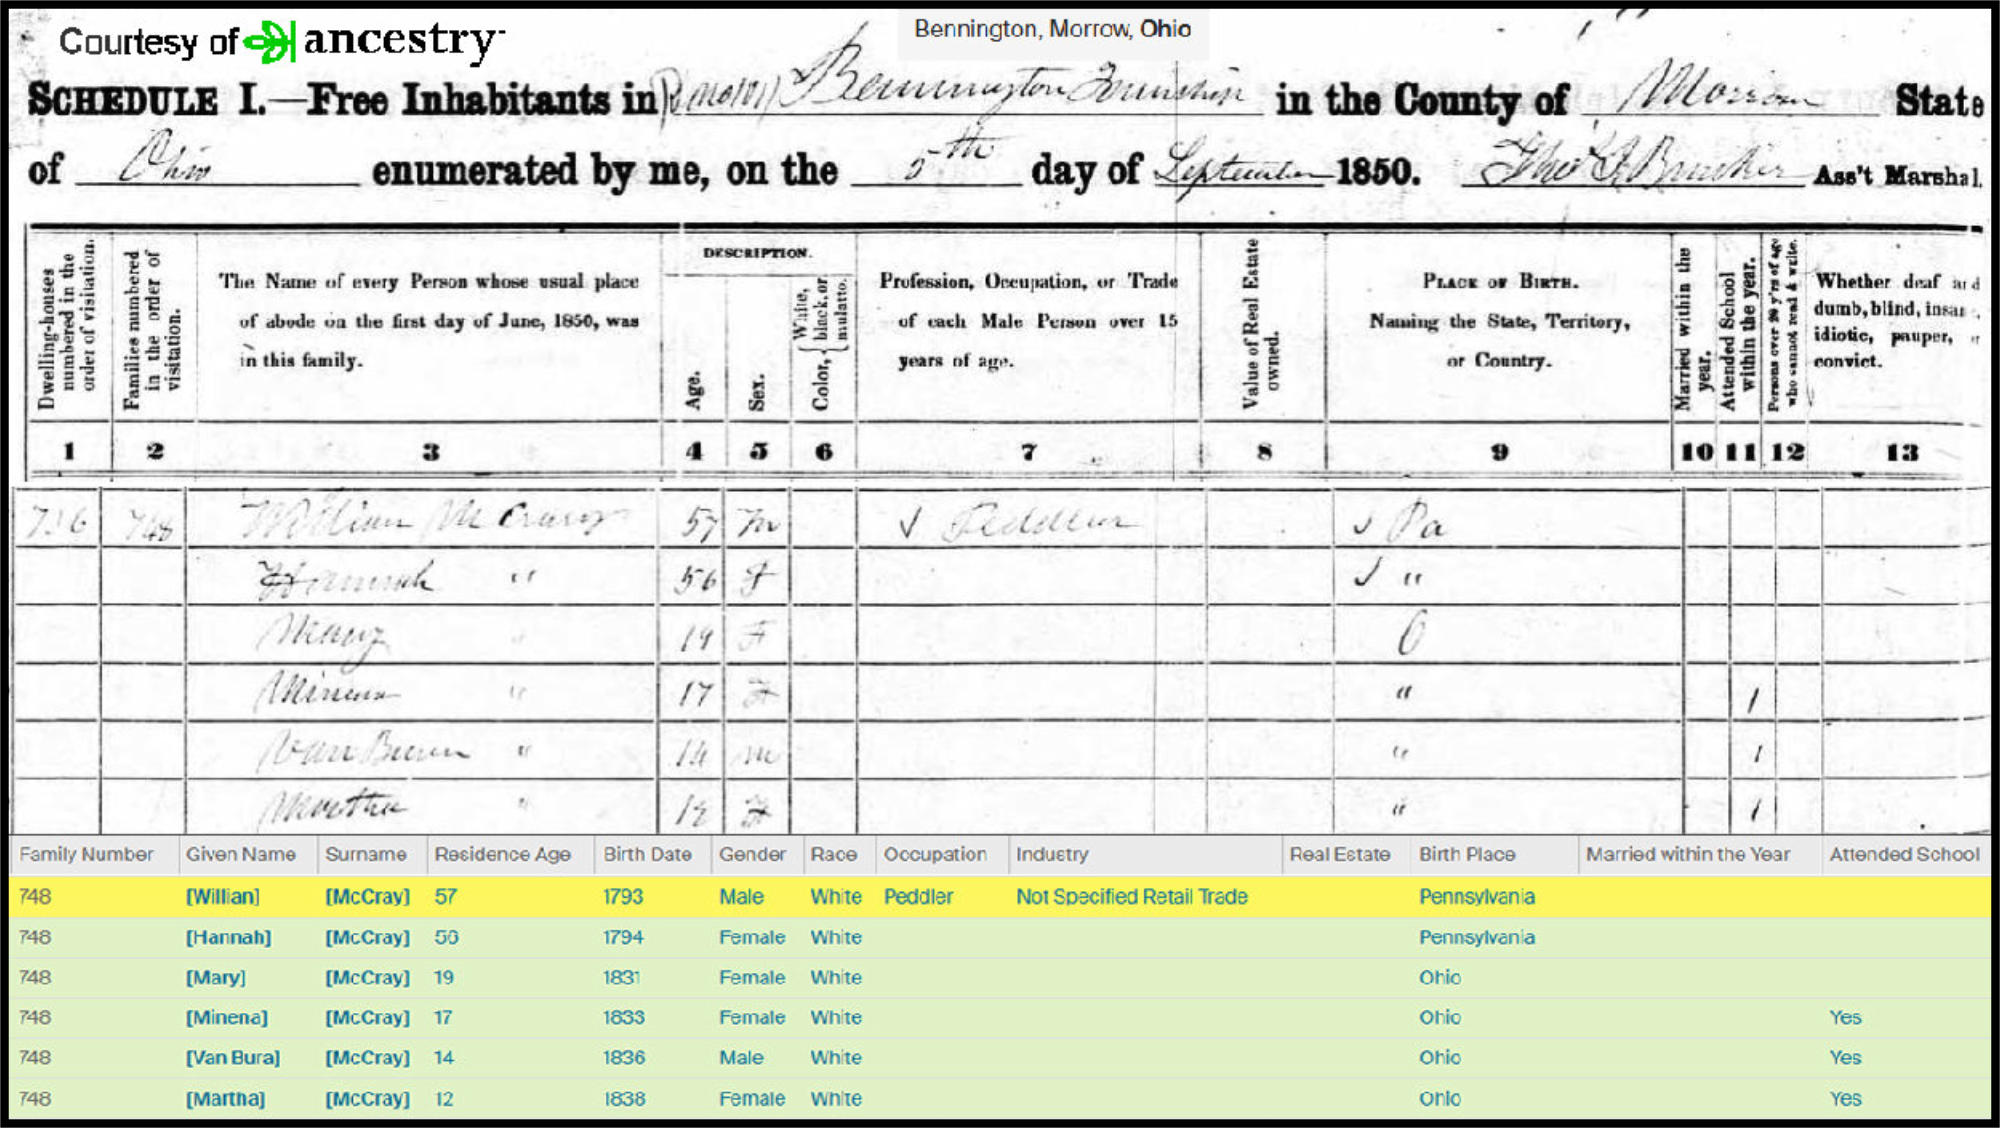 Courtesy of ancestry
Bennington, Morrow, Ohio
SCHEDULE I.—Free Inhabitants in Bennington Township in the County of Morrow State
of Ohio enumerated by me, on the 5th day of September 1850. Ass't Marshal.
Dwelling-houses numbered in the order of visitation.
Families numbered in the order of visitation.
The Name of every Person whose usual place
of abode on the first day of June, 1850, was
in this family.
DESCRIPTION.
Age.
Sex.
Color, { White, black, or mulatto.
Profession, Occupation, or Trade
of each Male Person over 15
years of age.
Value of Real Estate owned.
PLACE OF BIRTH.
Naming the State, Territory,
or Country.
Married within the year.
Attended School within the year.
Persons over 20 y'rs of age who cannot read & write.
Whether deaf and
dumb, blind, insane,
idiotic, pauper, or
convict.
1 2 3 4 5 6 7 8 9 10 11 12 13
736 748 William McCrary 57 m Peddler Pa
Hannah " 56 F "
Mary " 19 F O
Minerva " 17 F " 1
Van Buren " 14 m " 1
Martha " 12 F " 1
Family Number Given Name Surname Residence Age Birth Date Gender Race Occupation Industry Real Estate Birth Place Married within the Year Attended School
748 [Willian] [McCray] 57 1793 Male White Peddler Not Specified Retail Trade Pennsylvania
748 [Hannah] [McCray] 56 1794 Female White Pennsylvania
748 [Mary] [McCray] 19 1831 Female White Ohio
748 [Minena] [McCray] 17 1833 Female White Ohio Yes
748 [Van Bura] [McCray] 14 1836 Male White Ohio Yes
748 [Martha] [McCray] 12 1838 Female White Ohio Yes